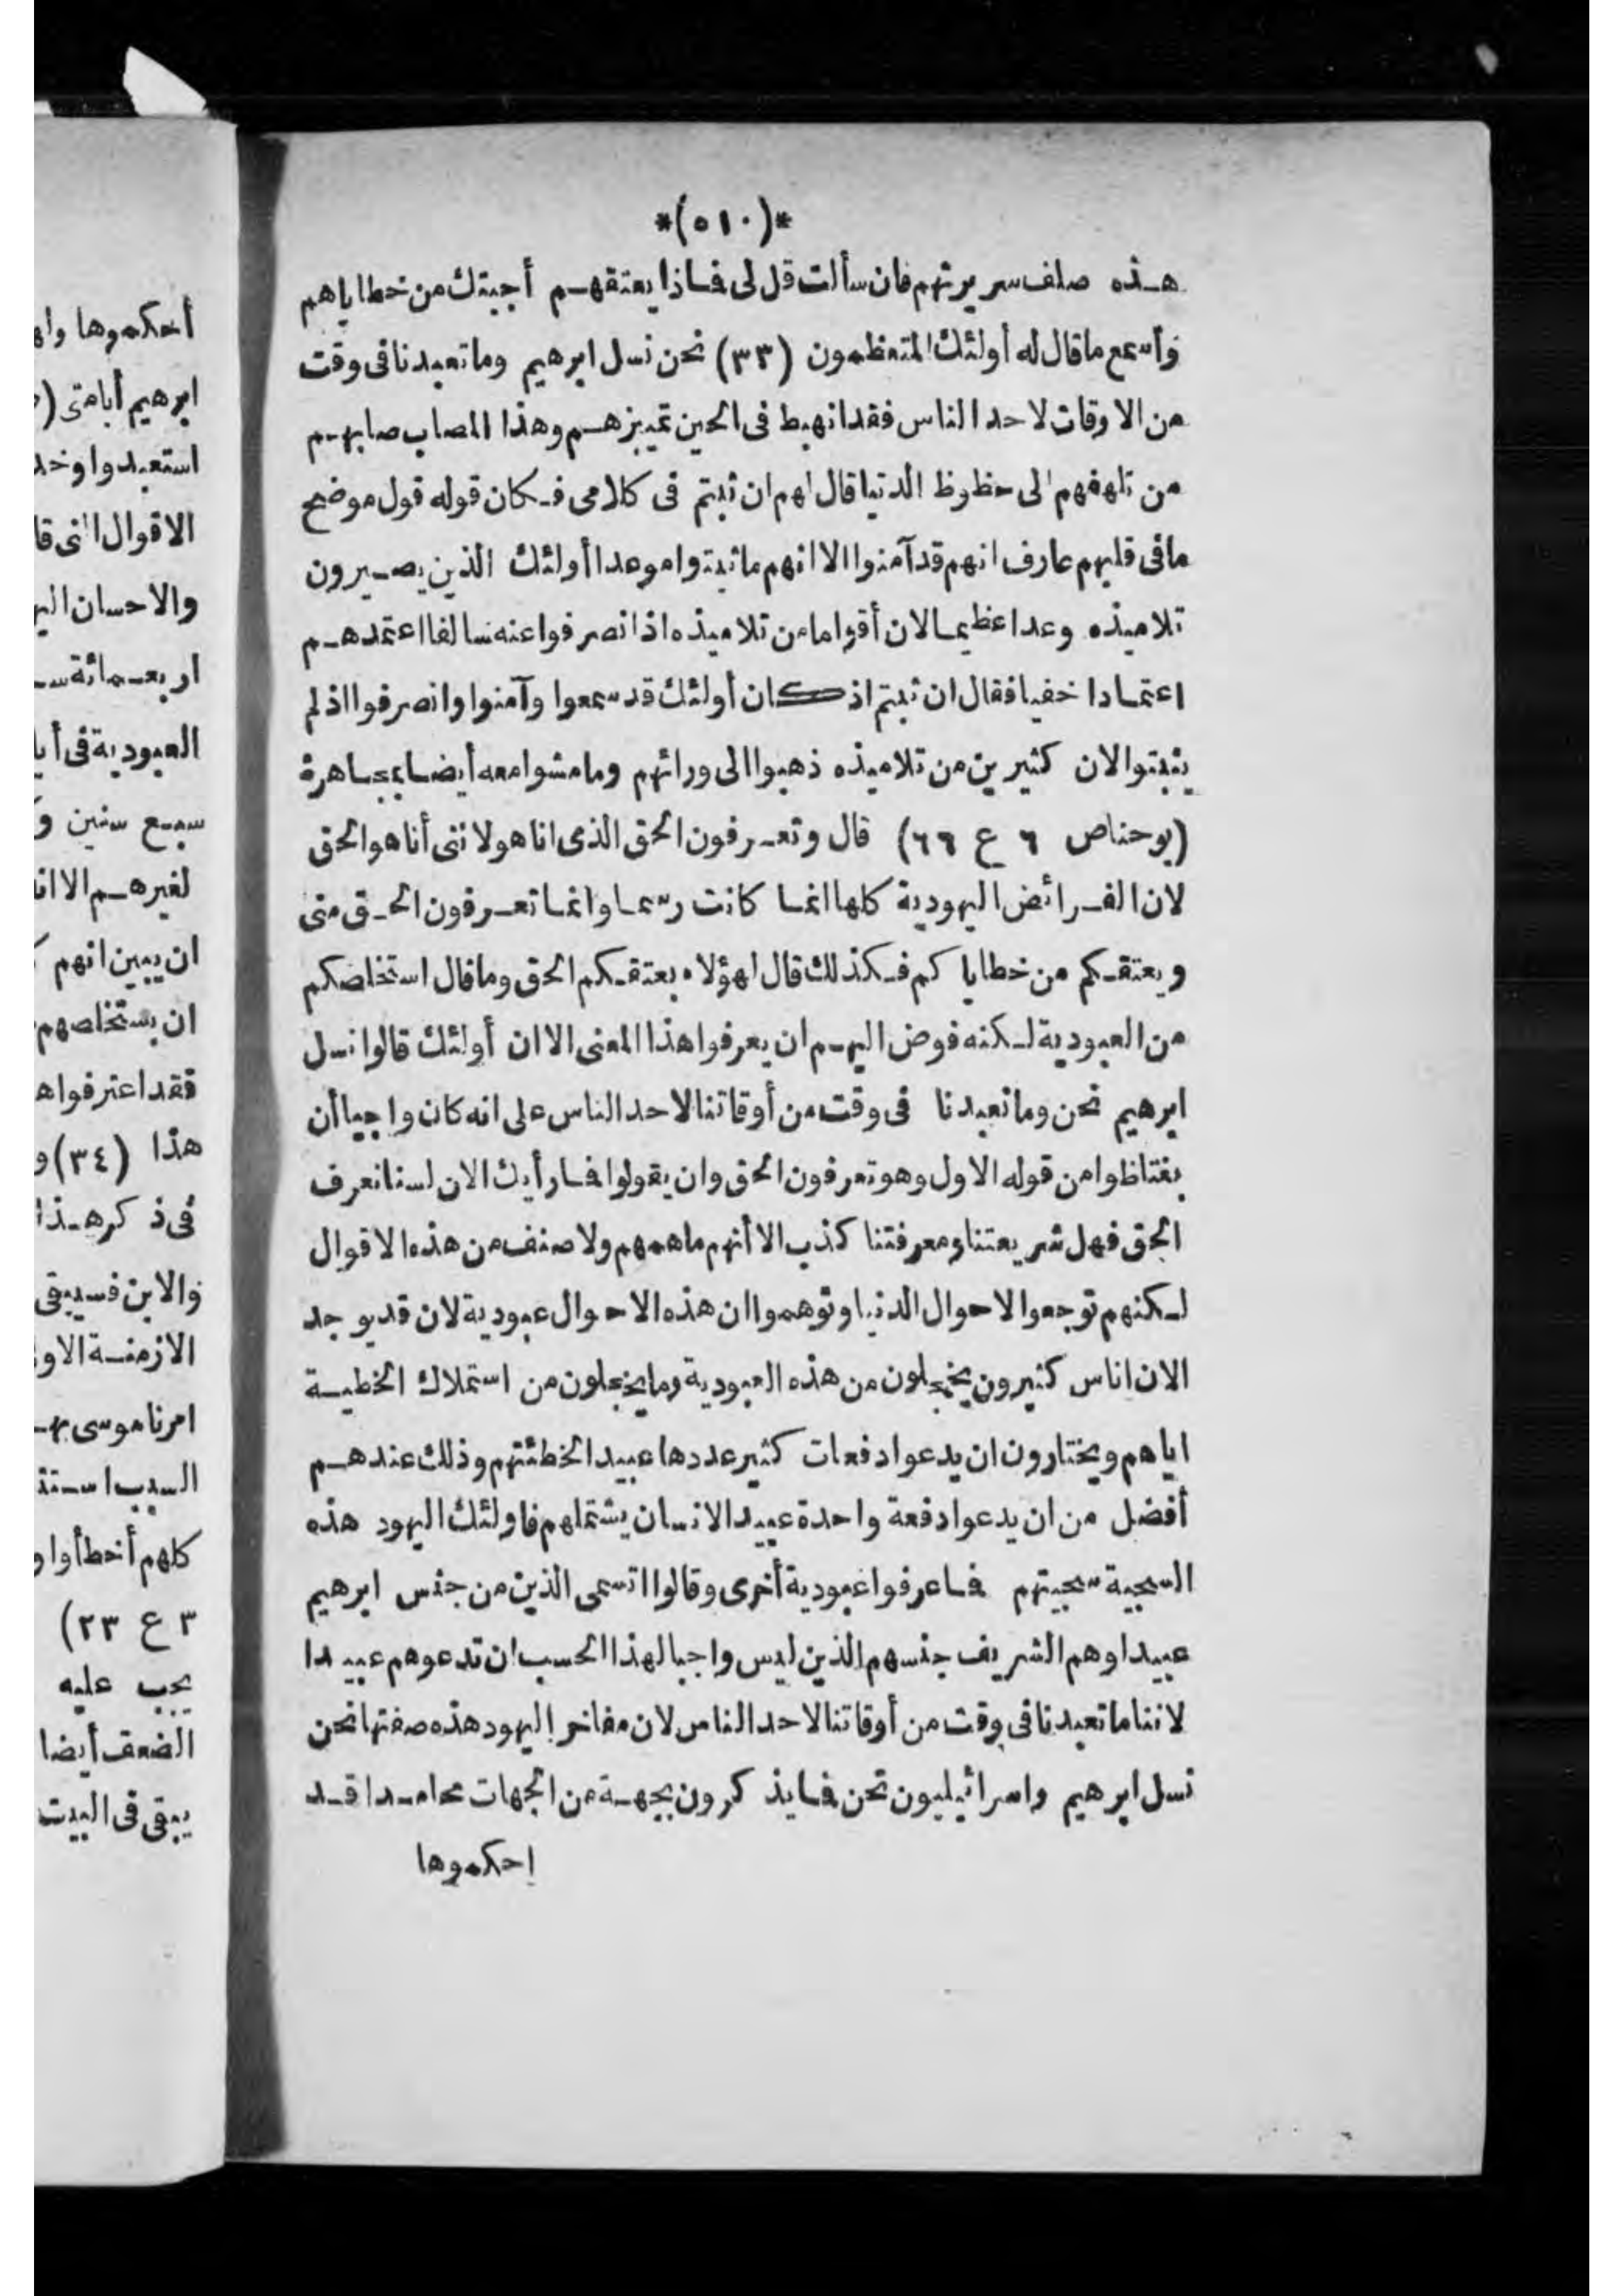 *(٥١٠)*
هذه صلف سريرتهم فان سألت قل لى فماذا يعتقهم أجبتك من خطاياهم
وأسمع ما قال له أولئك المتعظمون (٣٣) نحن نسل ابرهيم وما تعبدنا فى وقت
من الاوقات لاحد الناس فقد انهبط فى الحين تمييزهم وهذا المصاب صابهم
من تلهفهم الى حظوظ الدنيا قال لهم ان ثبتم فى كلامى فكان قوله قول موضح
ما فى قلبهم عارف انهم قد آمنوا الا انهم ما ثبتوا موعدا أولئك الذين يصيرون
تلاميذه وعدا عظيما لان أقواما من تلاميذه اذ انصرفوا عنه سالفا اعتمدهم
اعتمادا خفيا فقال ان ثبتم اذ كان أولئك قد سمعوا وآمنوا وانصرفوا اذ لم
يثبتوا لان كثيرين من تلاميذه ذهبوا الى ورائهم وما مشوا معه أيضا بمجاهرة
(يوحنا ص ٦ ع ٦٦) قال وتعرفون الحق الذى انا هو لاننى أنا هو الحق
لان الفرائض اليهودية كلها انما كانت رسما وانما تعرفون الحق منى
ويعتقكم من خطايا كم فكذلك قال لهؤلاء يعتقكم الحق وما قال استخلصكم
من العبودية لكنه فوض اليهم ان يعرفوا هذا المعنى الا ان أولئك قالوا نسل
ابرهيم نحن وما تعبدنا فى وقت من أوقاتنا لاحد الناس على انه كان واجبا أن
يغتاظوا من قوله الاول وهو تعرفون الحق وان يقولوا فما رأيك الان لسنا نعرف
الحق فهل شريعتنا ومعرفتنا كذب الا أنهم ما همهم ولا صنف من هذه الاقوال
لكنهم توجعوا لاحوال الدنيا وتوهموا ان هذه الاحوال عبودية لان قد يوجد
الان اناس كثيرون يخجلون من هذه العبودية وما يخجلون من استملاك الخطية
اياهم ويختارون ان يدعوا دفعات كثير عددها عبيدا لخطئتهم وذلك عندهم
أفضل من ان يدعوا دفعة واحدة عبيدا لانسان يشتملهم فاولئك اليهود هذه
السجية سجيتهم فما عرفوا عبودية أخرى وقالوا اتسمى الذين من جنس ابرهيم
عبيدا وهم الشريف جنسهم الذين ليس واجبا لهذا الحسب ان تدعوهم عبيدا
لاننا ما تعبدنا فى وقت من أوقاتنا لاحد الناس لان مفاخر اليهود هذه صفتها نحن
نسل ابرهيم واسرائيليون نحن فما يذ كرون بجهة من الجهات محامدا قد
احكموها
أحكموها
ابرهيم أبا متى
استعبدوا
الاقوال التى
والاحسان
اربعمائة
العبودية فى
سبع سنين
لغيرهم الا
ان يبين انهم
ان يستخلصهم
فقد اعترفوا
هذا (٣٤) و
فى ذ كر هذا
والابن فسيبقى
الازمنة
امرنا موسى
السبب
كلهم أخطأوا و
٣ ع ٢٣)
يجب عليه
الضعف أيضا
يبقى فى البيت